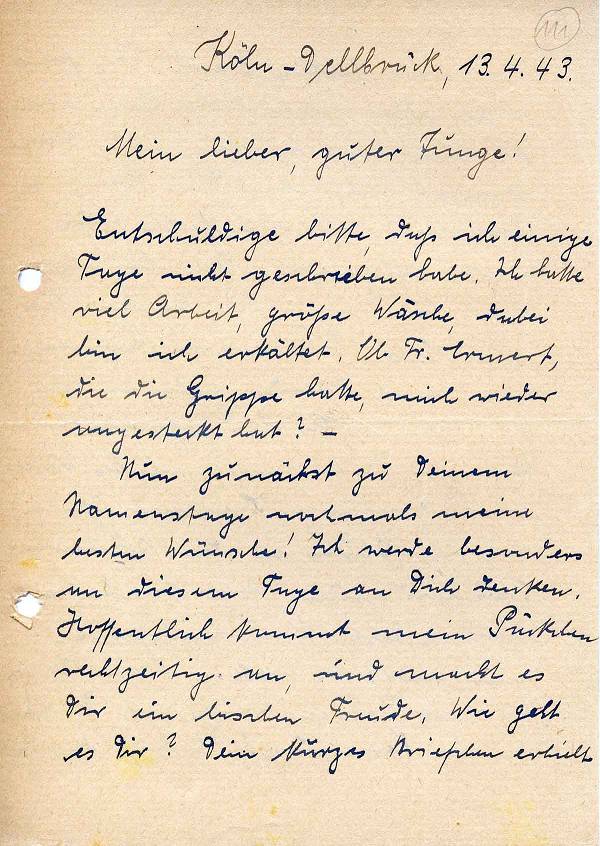 Köln-Dellbrück, 13.4.43.
Mein lieber, guter Junge!
Entschuldige bitte, daß ich einige
Tage nicht geschrieben habe. Ich hatte
viel Arbeit, große Wäsche, dabei
bin ich erkältet. Ob Fr.
die die Grippe hatte, mich wieder
angesteckt hat? –
Nun zunächst zu Deinem
Namenstage nochmals meine
besten Wünsche! Ich werde besonders
an diesem Tage an Dich denken.
Hoffentlich kommt mein Päckchen
rechtzeitig an, und macht es
Dir ein bischen Freude. Wie geht
es Dir? Dein kurzes Briefchen erhielt